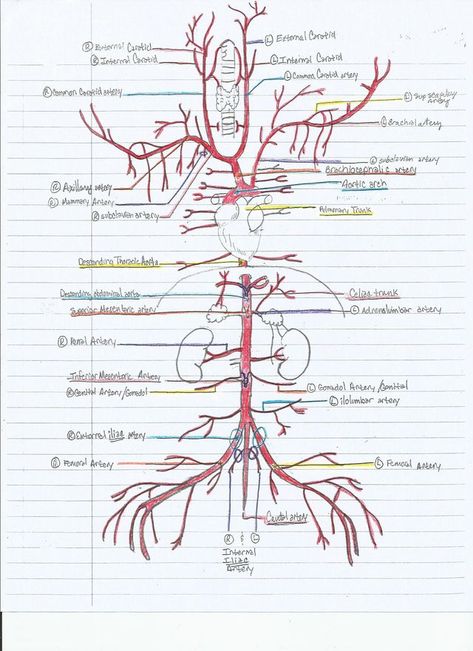 Ⓡ External Carotid
Ⓛ External Carotid
Ⓡ Internal Carotid
Ⓛ Internal Carotid
Ⓛ Common Carotid artery
Ⓡ Common Carotid artery
Ⓛ Supscapular
artery
Ⓛ Brachial artery
Ⓛ subclavian artery
Brachiocephalic artery
Ⓡ Axillary artery
Aortic arch
Ⓡ Mammary Artery
Ⓡ subclavian artery
Pulmonary Trunk
Descending Thoracic Aorta
Descending abdominal aorta
Celiac trunk
Superior Mesenteric artery
Ⓛ Adrenolumbar artery
Ⓡ Renal Artery
Inferior Mesenteric Artery
Ⓡ Genital Artery/Gonadol
Ⓛ Gonadol Artery/Genital
Ⓛ iliolumbar artery
Ⓡ External iliac Artery
Ⓡ Femoral Artery
Ⓛ Femoral Artery
Caudal artery
Ⓡ & Ⓛ
Internal
Iliac
Artery